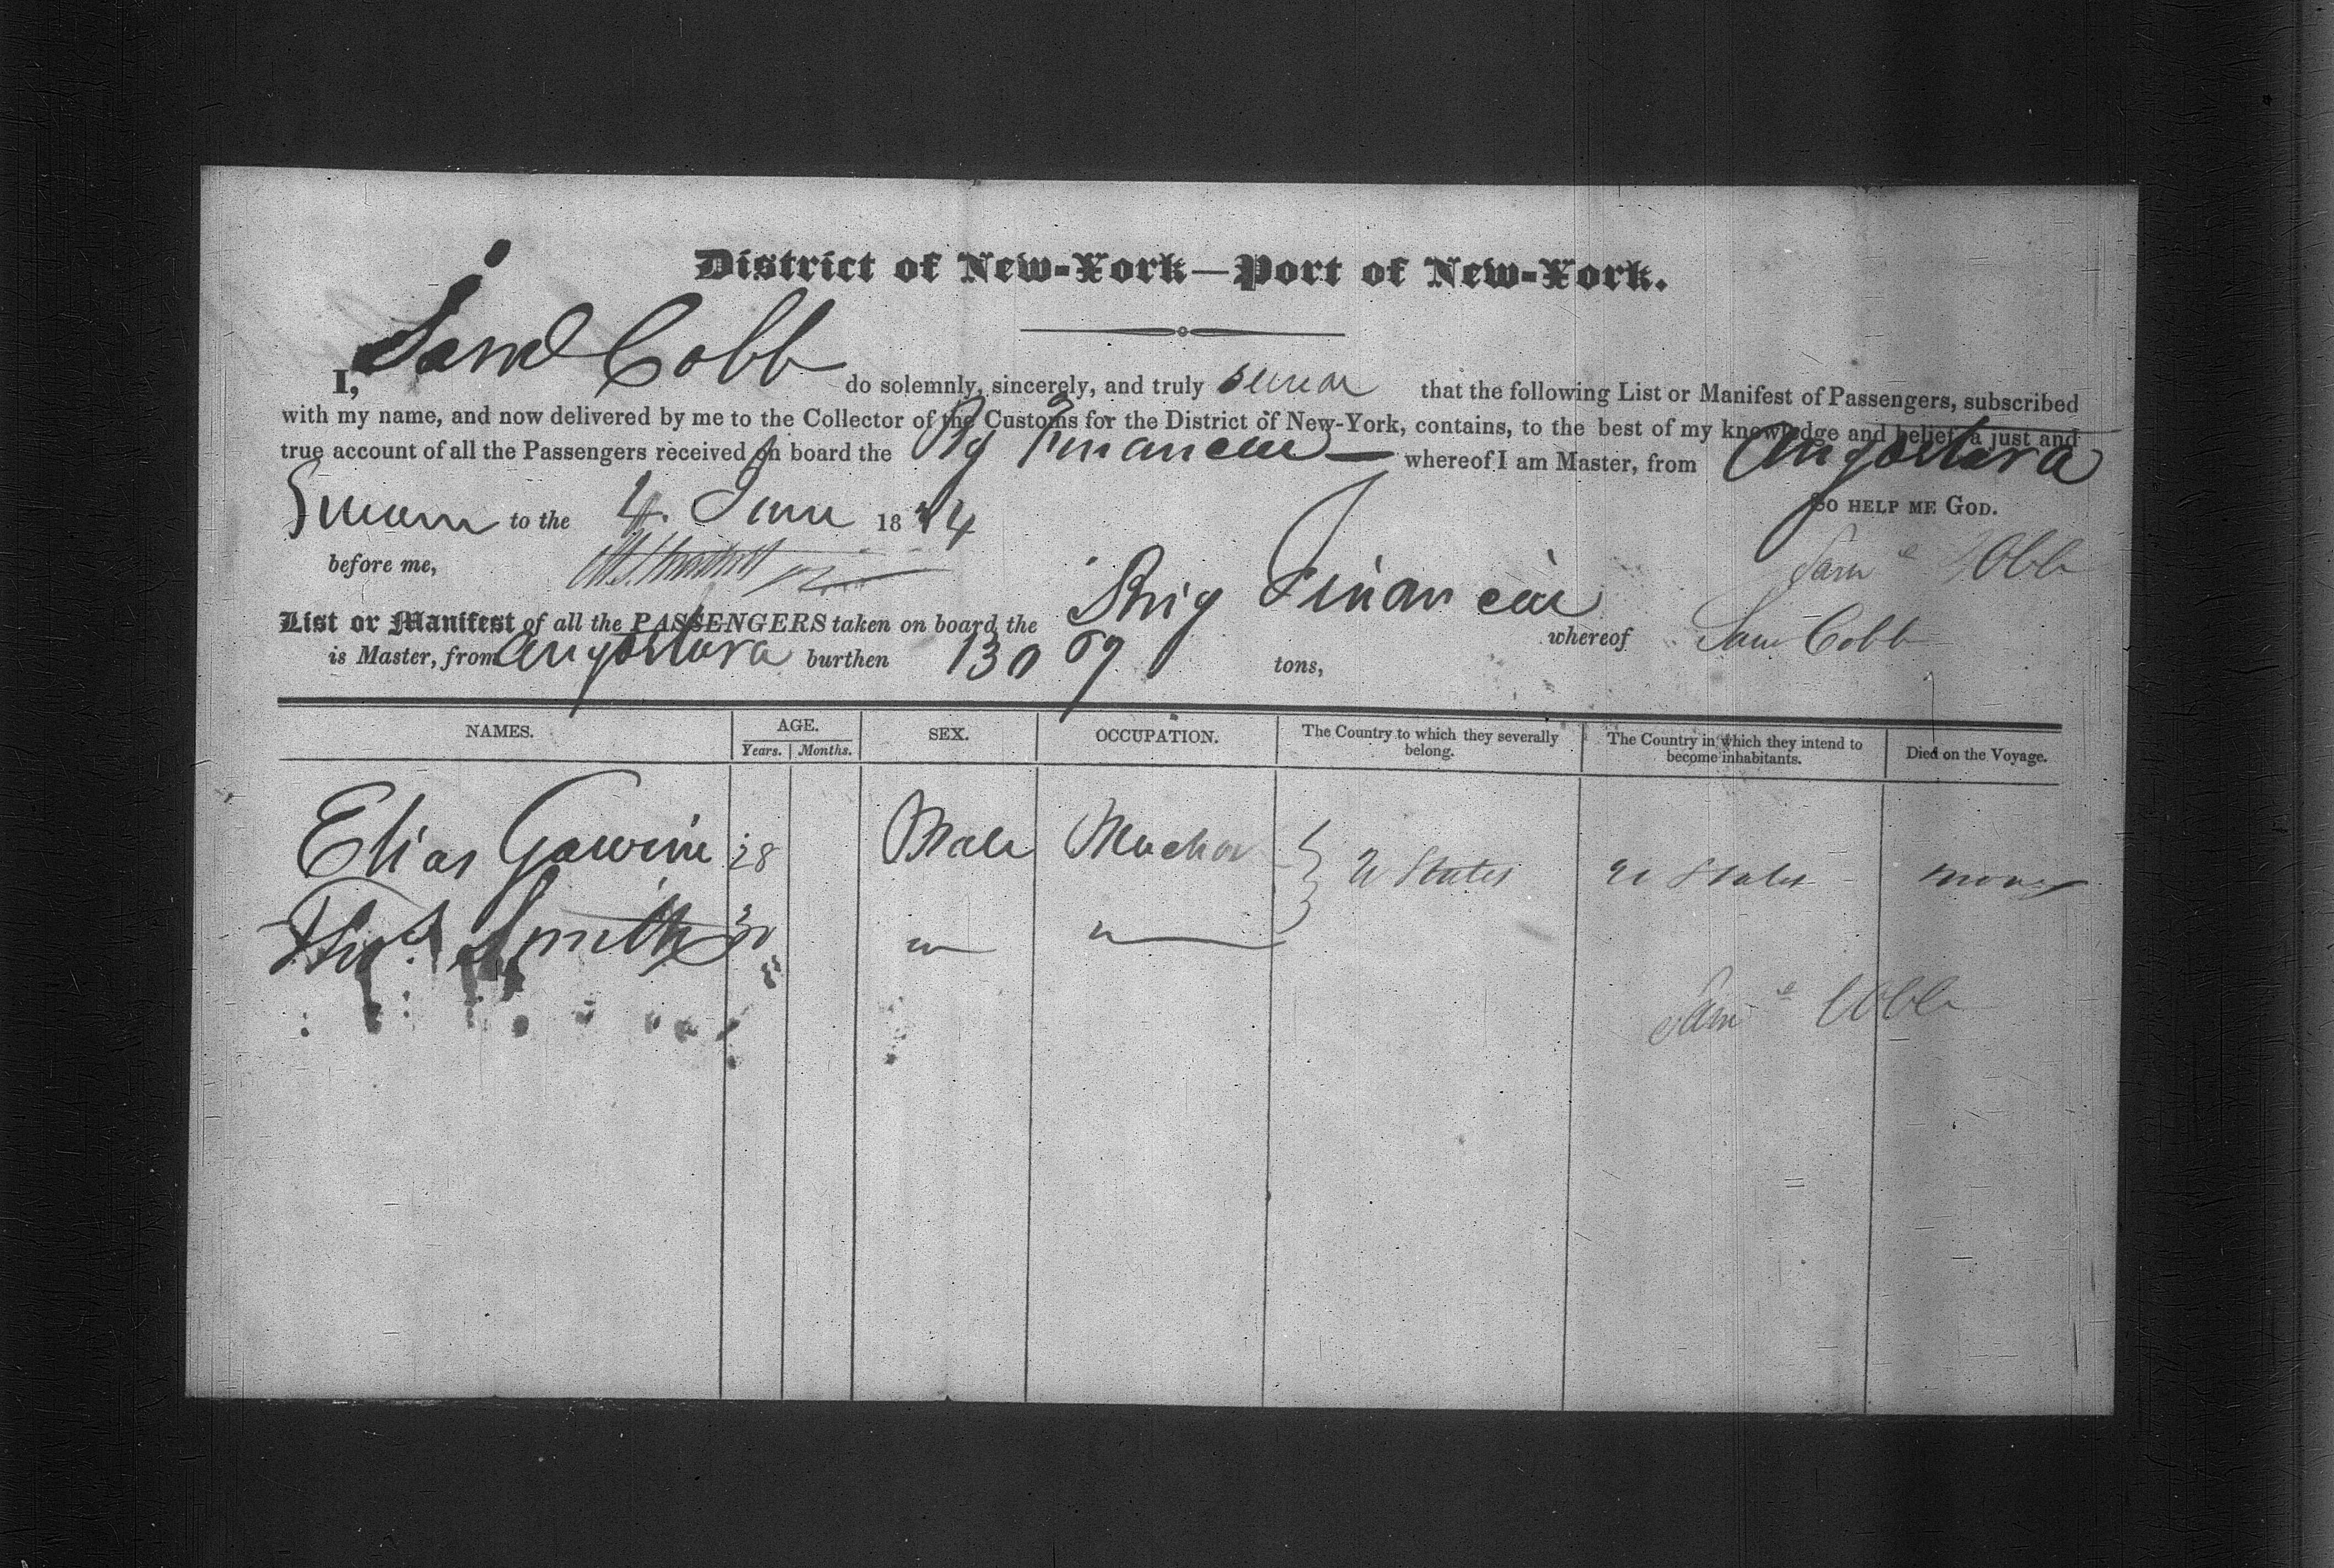 District of New-York—Port of New-York.
I, Saml Cobb do solemnly, sincerely, and truly swear that the following List or Manifest of Passengers, subscribed
with my name, and now delivered by me to the Collector of the Customs for the District of New-York, contains, to the best of my knowledge and belief, a just and
true account of all the Passengers received on board the Bg Financier whereof I am Master, from Angostura
Sworn to the 4. June 1834 So help me God.
before me, Saml Cobb
List or Manifest of all the PASSENGERS taken on board the Brig Financier whereof Sam Cobb
is Master, from Angostura burthen 130 69 tons,
NAMES. AGE. SEX. OCCUPATION. The Country to which they severally belong. The Country in which they intend to become inhabitants. Died on the Voyage.
Years. Months.
Elias 28 Male U States U States none
Thos. Smith 30 " "
Saml Cobb